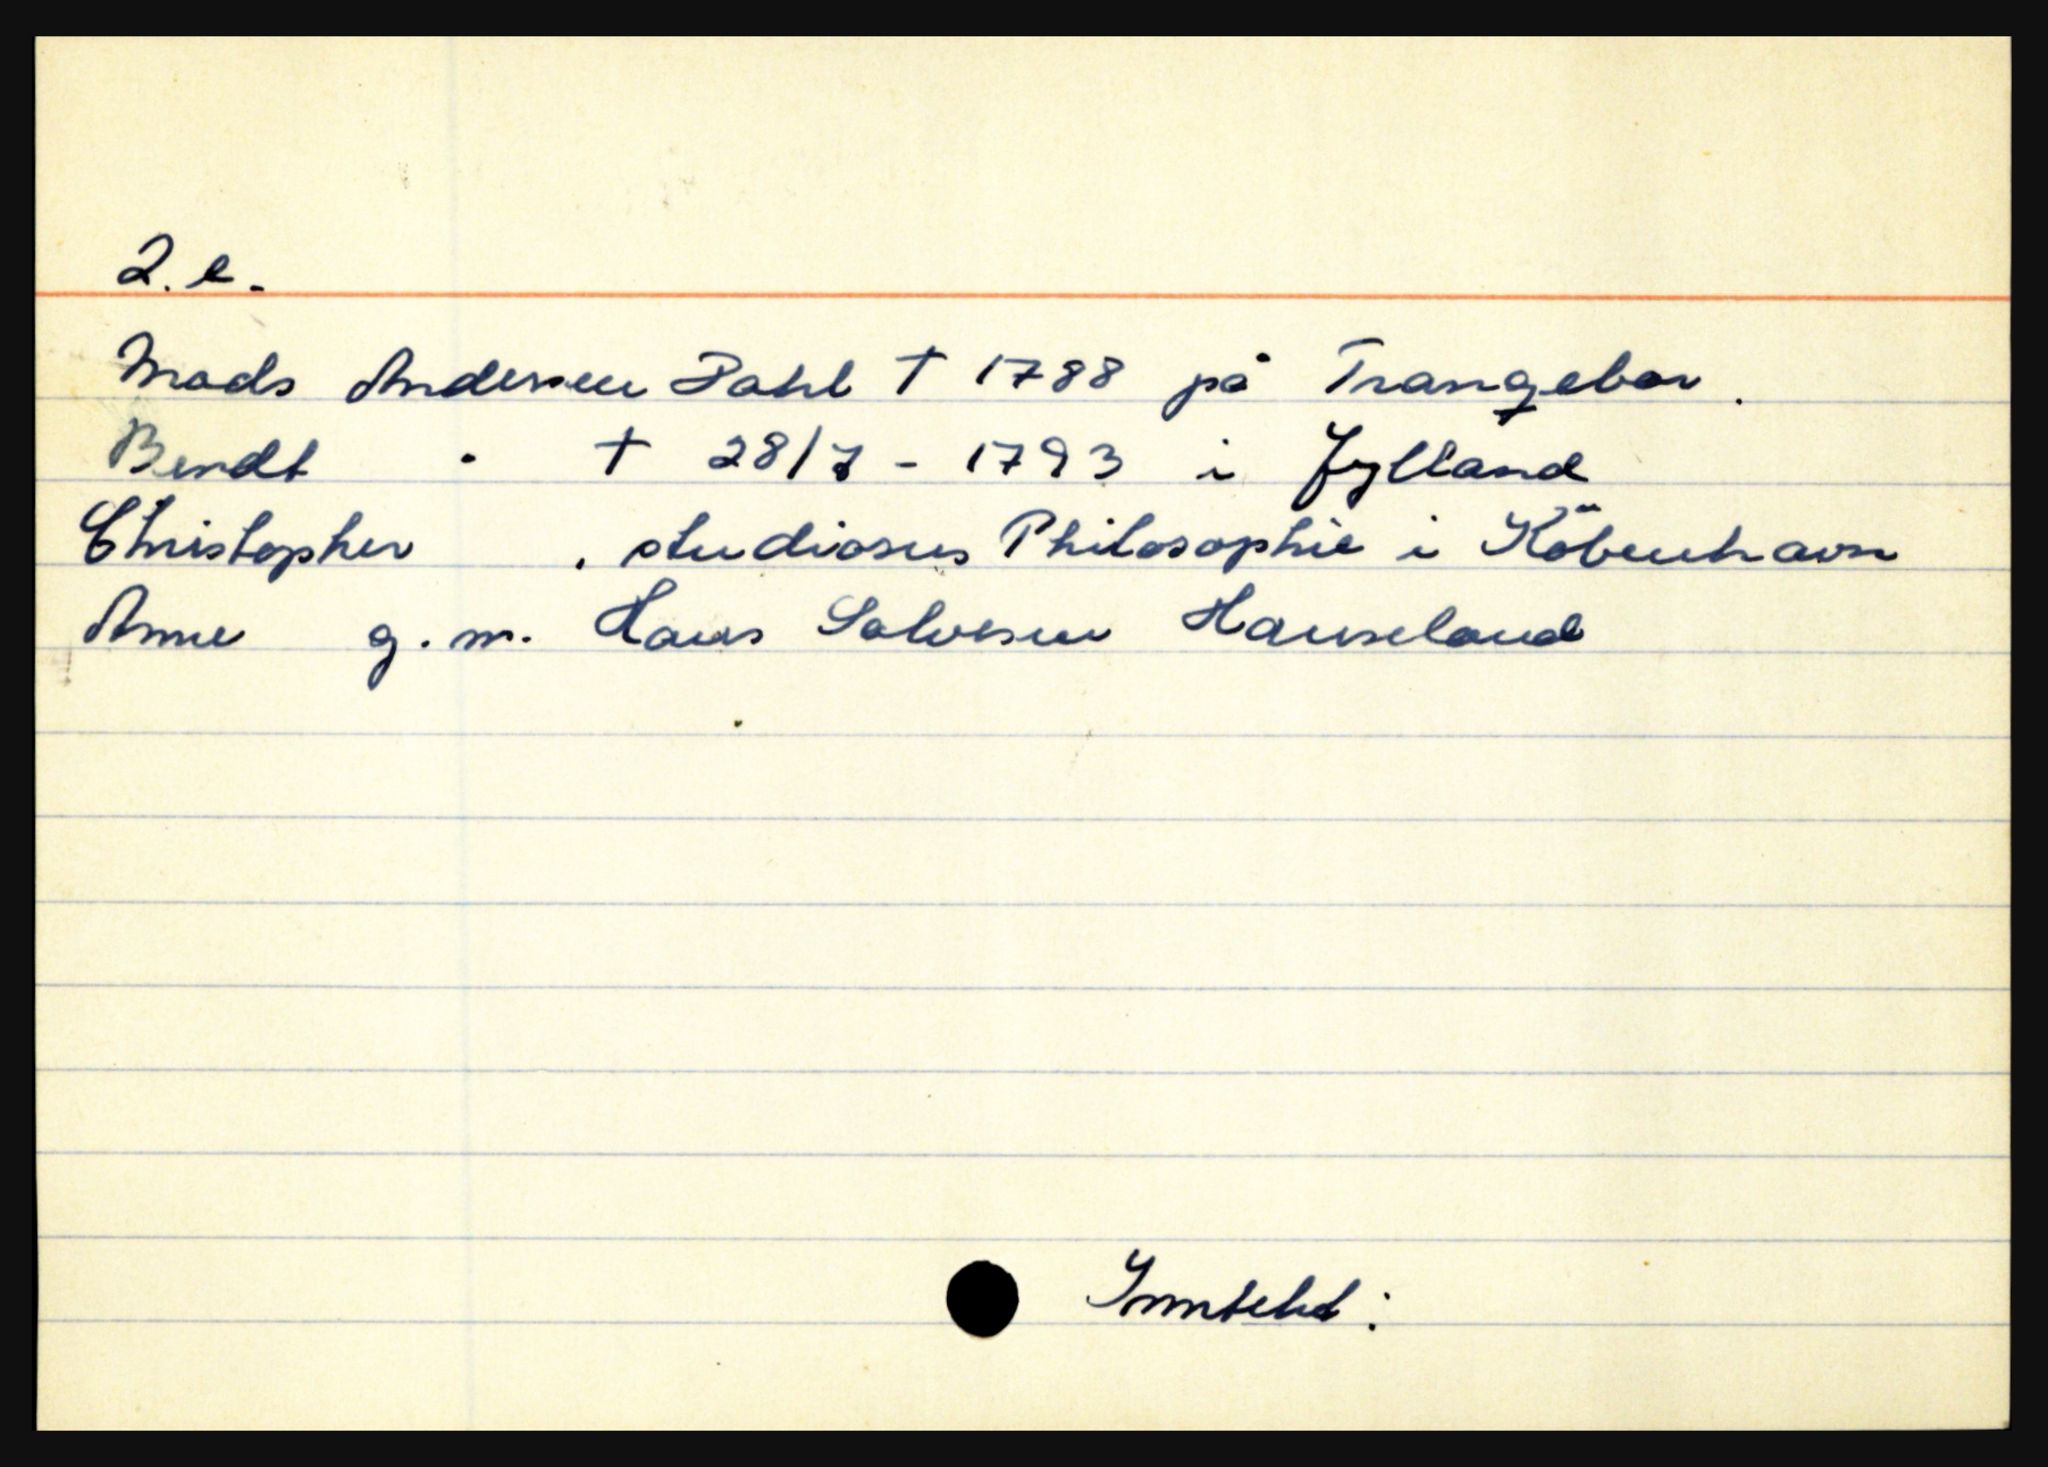 2. e.
Mads Andersen Dahl † 1788 på Trangebar.
Bendt " † 28/7 - 1793 i Jylland
Christopher . studiosus Philosophie i Köbenhavn
Anne g. m. Hans Salvesen Hauseland